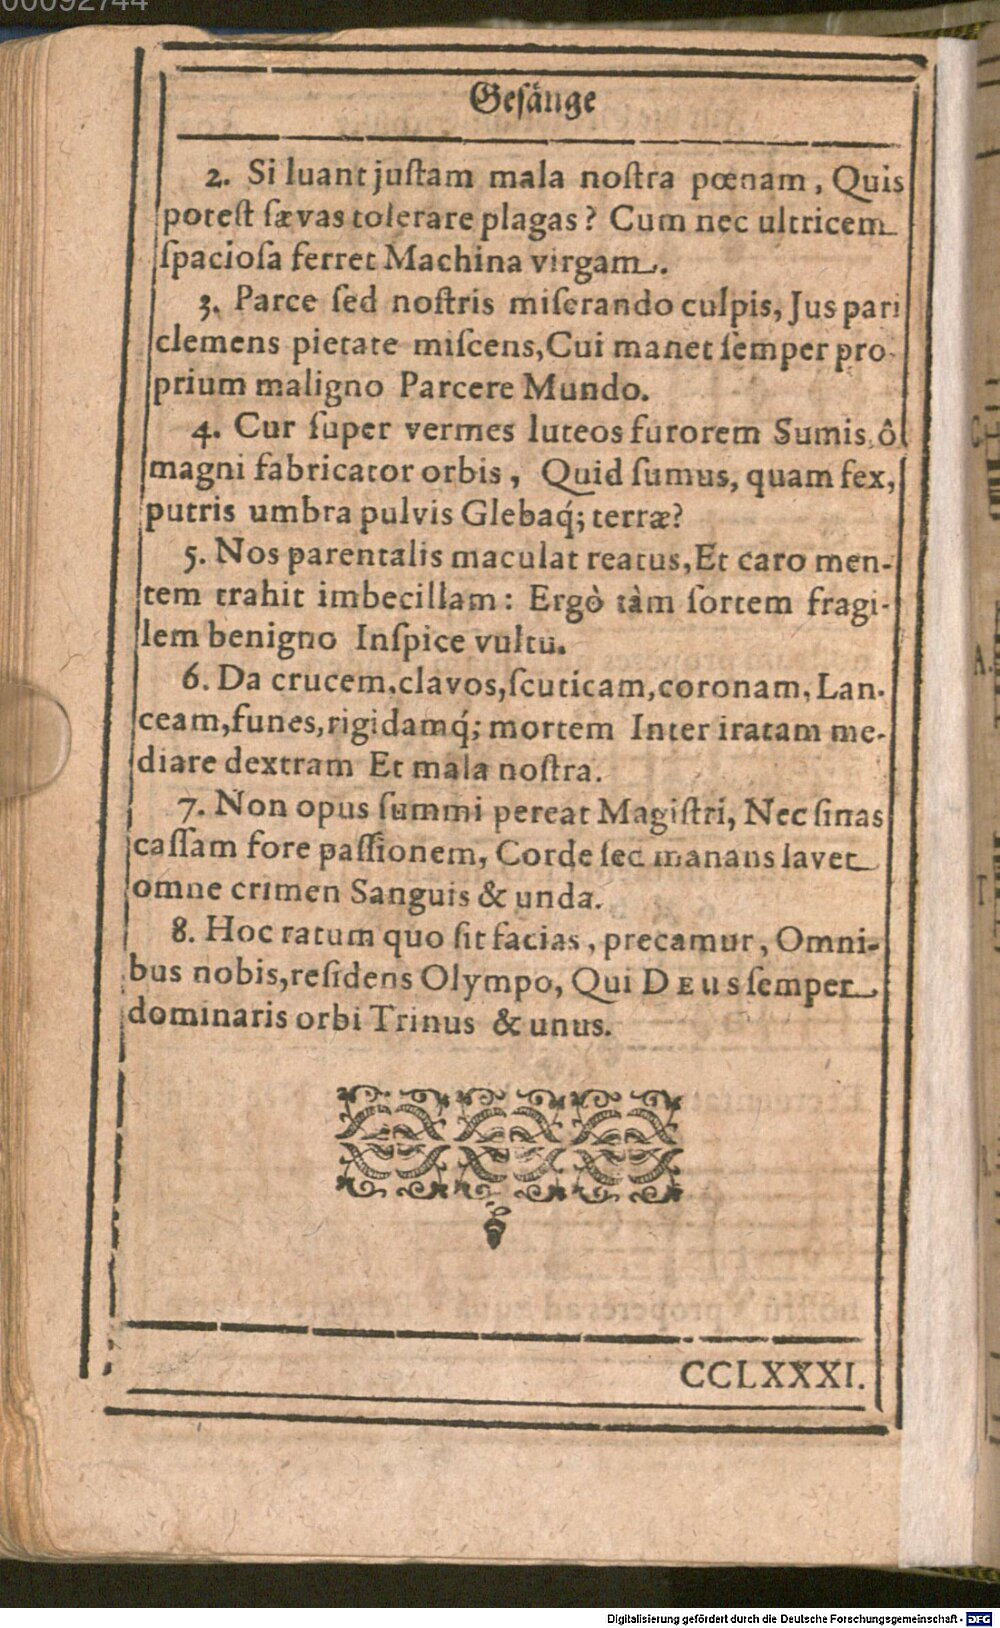 00092744
Gesänge
2. Si luant juſtam mala noſtra pœnam, Quis
poteſt ſævas tolerare plagas? Cum nec ultricem
ſpacioſa ferret Machina virgam.
3. Parce ſed noſtris miſerando culpis, Jus pari
clemens pietate miſcens, Cui manet ſemper pro-
prium maligno Parcere Mundo.
4. Cur ſuper vermes luteos furorem Sumis, ô
magni fabricator orbis, Quid ſumus, quam fex,
putris umbra pulvis Glebaq́; terræ?
5. Nos parentalis maculat reatus, Et caro men-
tem trahit imbecillam: Ergò tàm ſortem fragi-
lem benigno Inſpice vultu.
6. Da crucem, clavos, ſcuticam, coronam, Lan-
ceam, funes, rigidamq́; mortem Inter iratam me-
diare dextram Et mala noſtra.
7. Non opus ſummi pereat Magiſtri, Nec ſinas
caſſam fore paſſionem, Corde ſed manans lavet
omne crimen Sanguis & unda.
8. Hoc ratum quo ſit facias, precamur, Omni-
bus nobis, reſidens Olympo, Qui DEUS ſemper
dominaris orbi Trinus & unus.
CCLXXXI.
Digitalisierung gefördert durch die Deutsche Forschungsgemeinschaft - DFG